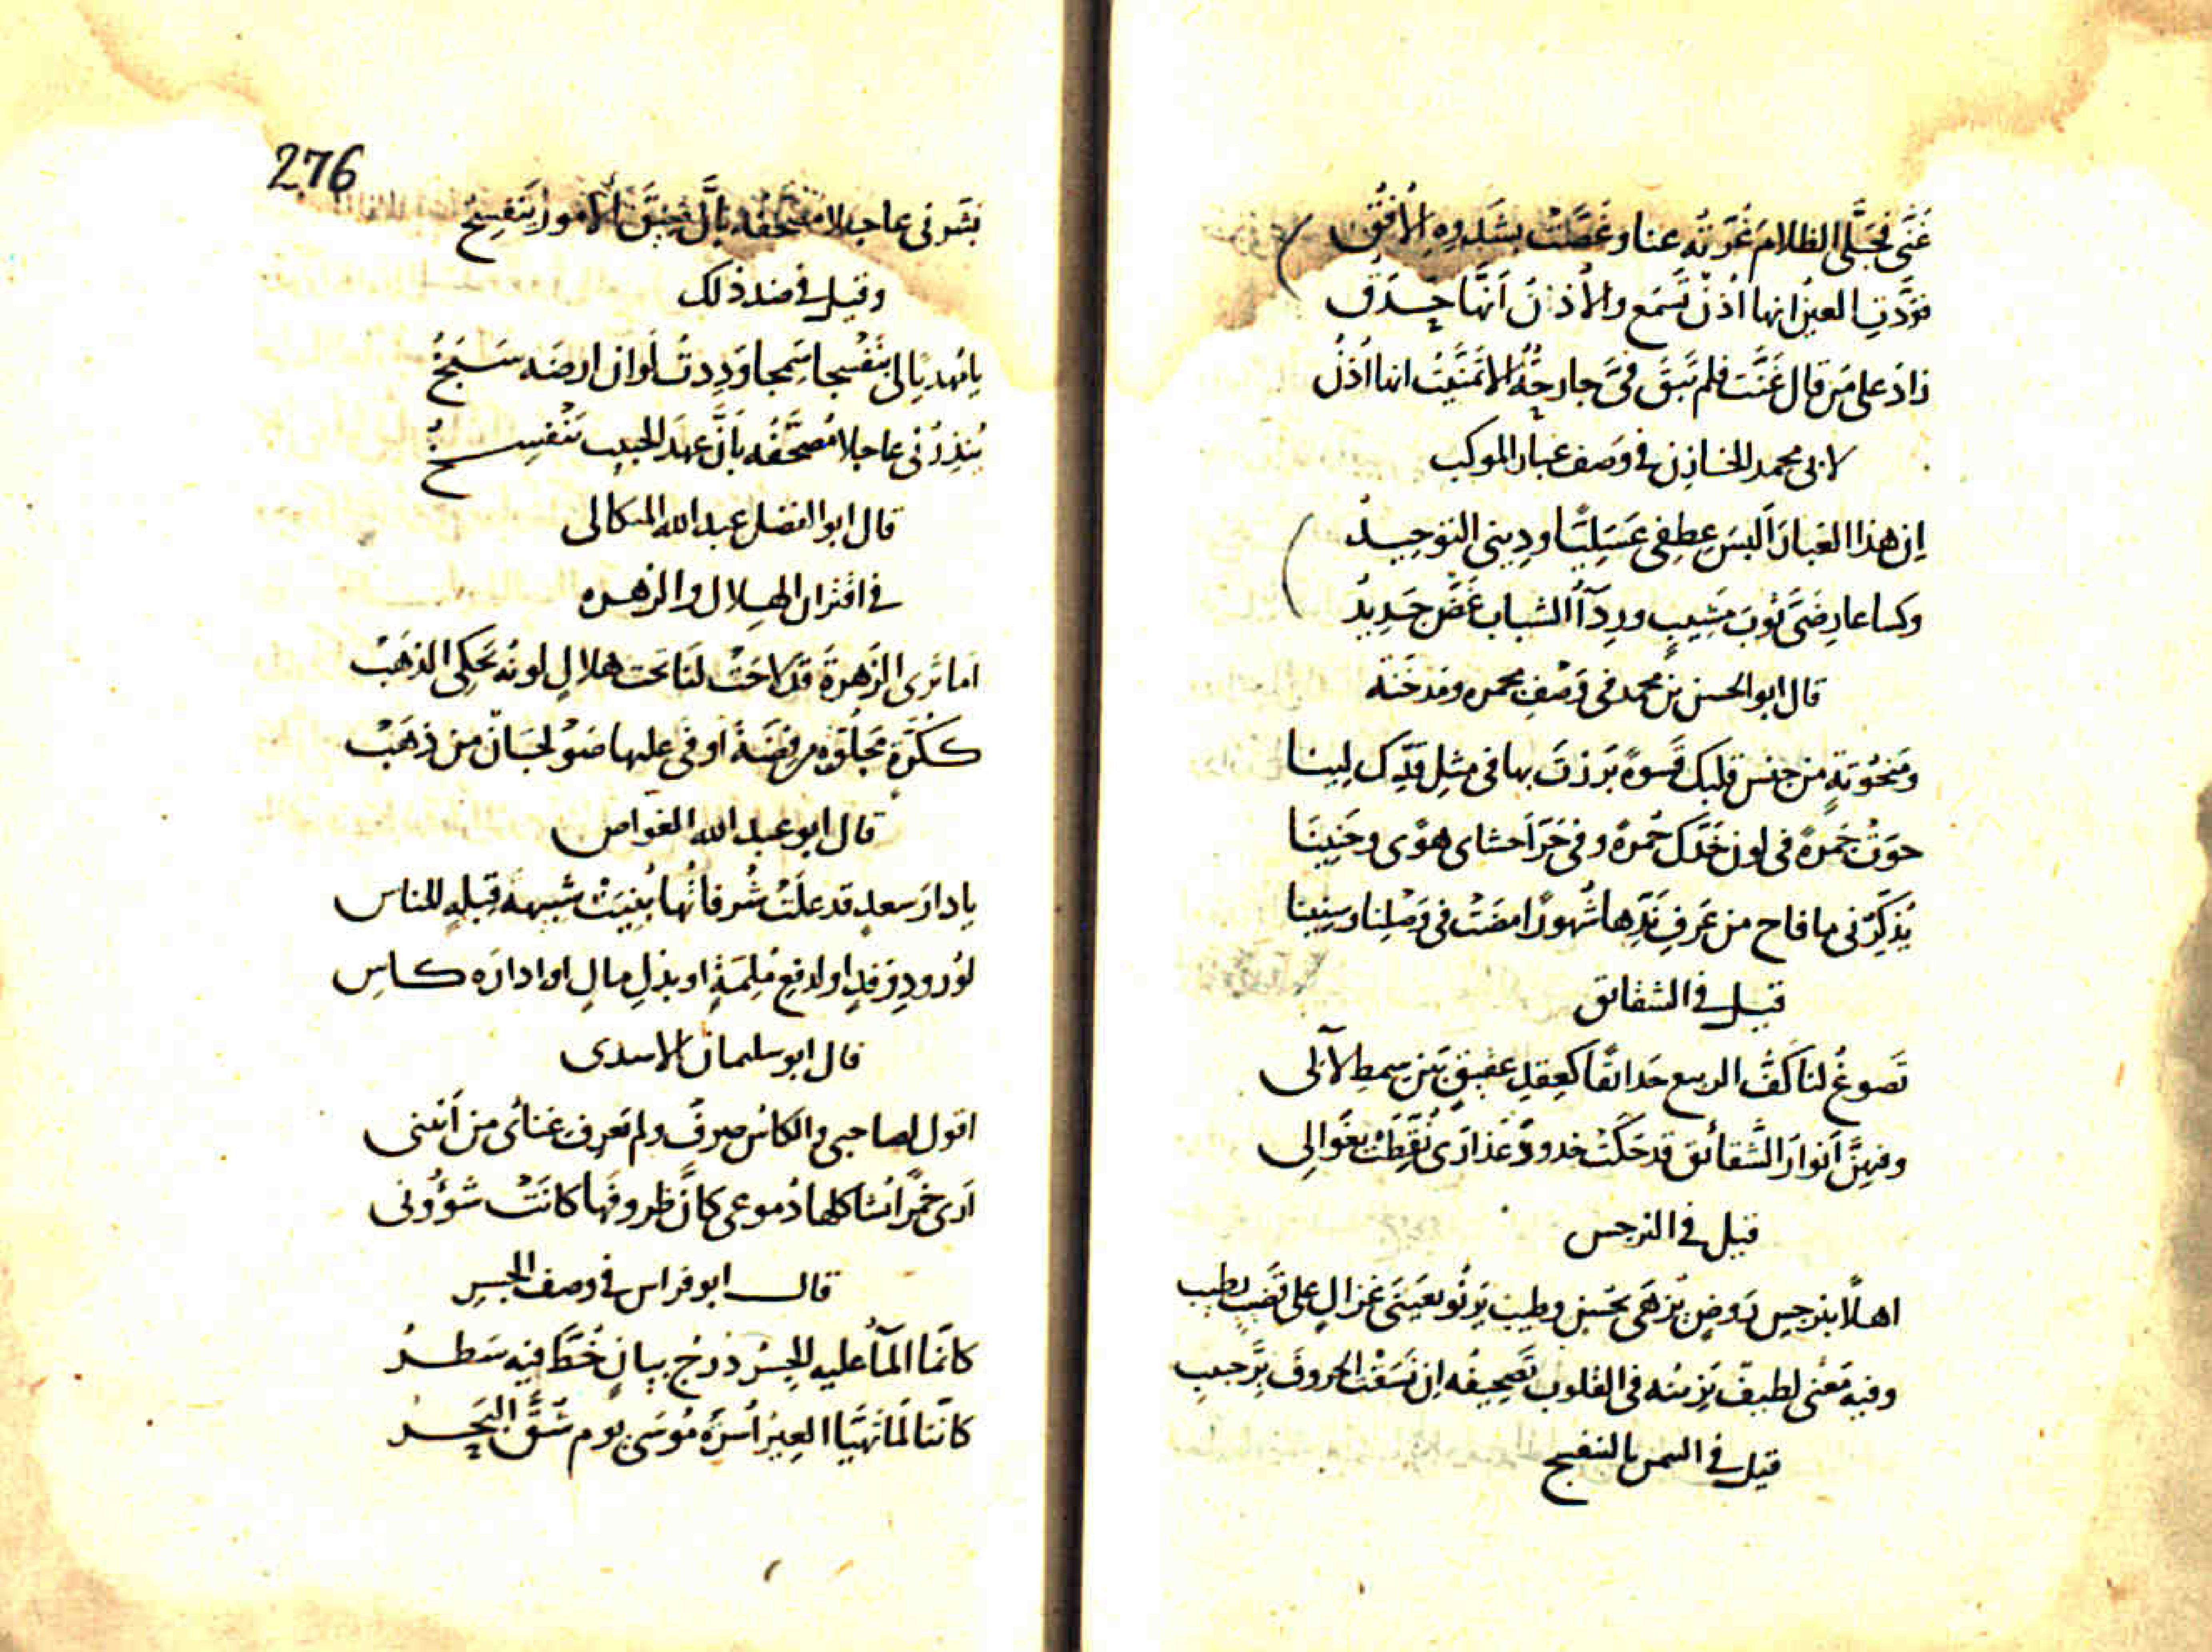 غَنَّى فجَلَّى الظلامَ غُرَّتُه عنا وغَصَّتْ بشَدوِهِ الاُفُقُ
فوَدَّتِ العينُ انها اُذنٌ تَسمَع والاُذنُ اَنَّها حَدَقُ
زادَ على مَن قال غَنَّت فلم تَبقَ فىَّ جارحةٌ الا تمنَّيتُ انها اُذنُ
لابى محمد الخازن فى وَصف غبار الموكب
اِن هذا الغبارَ اَلبسَ عِطفى عَسَلِيًّا ودِينى التوحيدُ
وكسا عارِضَىَّ ثوبَ مَشيبٍ ورِدَآءُ الشباب غَضٌّ جَدِيدُ
قال ابو الحسن بن محمد فى وَصفِ مجمره ومدخنة
ومَنحُوتةٍ من جنس قلبك قَسوةً بَرزتَ بها فى مثلِ قدِّك لِينا
حوَتْ جَمرةً فى لون خدّك حُمرةً وفى حَرّ اَحشاى هوًى وحَنِينَا
يُذكِّرنى ما فاح من عَرفِ نَدِّها شُهورًا مضَتْ فى وَصْلِنا وسِنِينا
قيل فى الشقائق
تَصوغُ لنا كَفُّ الربيع حَدائقًا كعِقدِ عقيقٍ بَين سِمطِ لآلى
وفيهنَّ اَنوارُ الشَّقائق قد حَكَتْ خدودَ عَذارَى نُقِّطَتْ بغَوالِى
قيل فى النرجس
اهلًا بنرجسِ رَوضٍ يُزهَى بحُسنٍ وطيب يَرنُو بعَينَى غزالٍ على قضيبٍ رطيب
وفيه مَعنًى لطيفٌ يَزينُه فى القلوب تَصحِيفُه اِن نَسَقْتَ الحروفَ بِرُّ حبيبِ
قيل فى التيمن بالبنفسج
276
بَشّرنى عاجلا مصحّفه بأنَّ ضِيقَ الامور يَنفسِحُ
وقيل فى ضد ذلك
يا مُهدِيًا لى بَنَفْسجا سَمِجا وَدِدتُ لَو انّ ارضَه سَبَخُ
يُنذِرُنى عاجلا مُصحَّفُه بأنّ عهدَ الحبيب يَنْفسِخُ
قال ابو الفضل عبد الله الميكالى
فى اقتران الهلال والزهره
اَما تَرى الزُهرةَ قد لاحَتْ لنَا تحت هلالٍ لونُه يَحكِى الذهَبْ
ككُرَةٍ مَجلُوّةٍ من فِضّةٍ اَوفى عليها صَوْلجَانٌ من ذهَبْ
قال ابو عبد الله الغواص
يا دارَ سعدٍ قد علَتْ شُرفاتُها بُنِيَتْ شبيهةَ قِبلةٍ للناس
لوُرودِ وَفدٍ او لدفعِ مُلِمّةٍ او بذلِ مالٍ او ادارَه كاسِ
قال ابو سليمان الاسدى
اقول لصاحبى والكاسُ صِرفٌ ولم تعرف غنائى من اَنِينى
اَرى خمرًا تُشاكلها دُموعى كاَنّ ظروفَها كانَتْ شؤُونى
قال ابو فراس فى وصف الجسرِ
كانّما المآءُ عليه الجِسرُ دَرْجُ بيانٍ خُطَّ فيه سَطرُ
كاَنّنا لمَّا تَهيّا العِبرُ اُسْرَةُ مُوسَى يوم شُقَّ البَحرُ